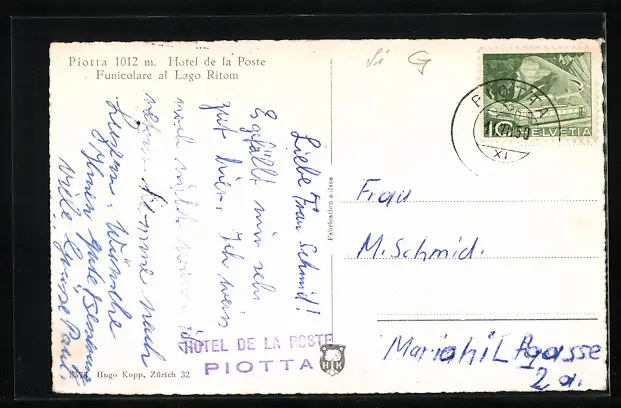 Piotta 1012 m. Hotel de la Poste
Funicolare al Lago Ritom
Si G
PIOTTA
50
XI
10
HELVETIA
Liebe Frau Schmid!
Es gefällt mir sehr
gut hier. Ich weis
noch nicht wann ich
komme nach
Luzern. Wünsche
Ihnen gute
Viele Grüsse Paul.
Fabrication suisse
Frau
M. Schmid.
Mariahilfgasse
2 a.
HOTEL DE LA POSTE
PIOTTA
HK
8574 Hugo Kopp, Zürich 32